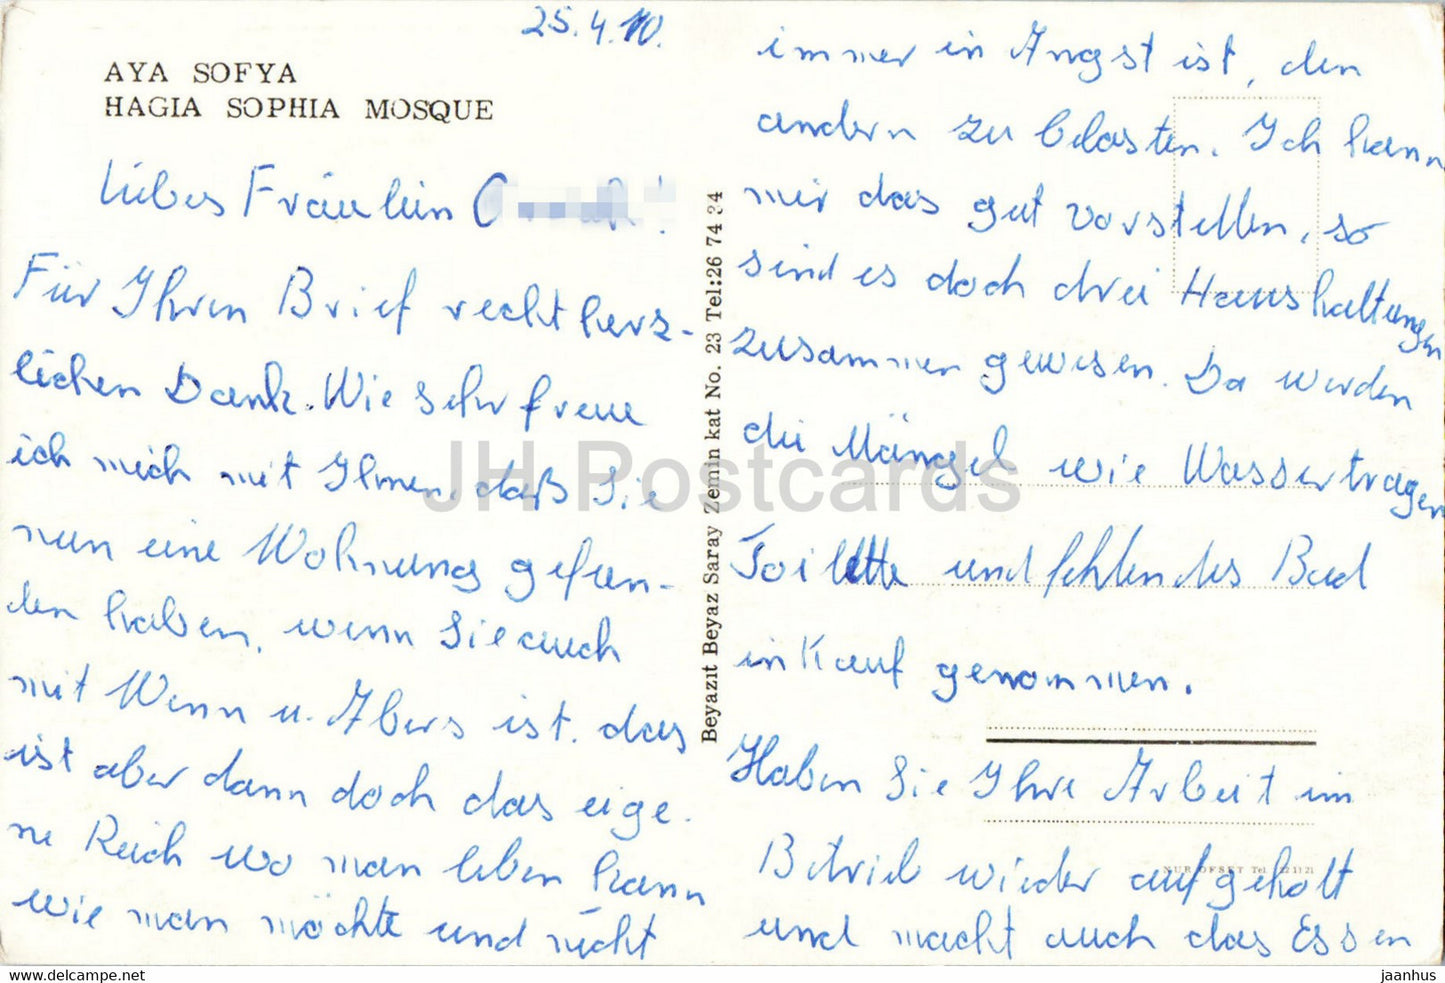 25.4.70.
AYA SOFYA
HAGIA SOPHIA MOSQUE
Liebes Fräulein
Für Ihren Brief recht herz-
lichen Dank. Wie sehr freue
ich mich mit Ihnen, daß Sie
nun eine Wohnung gefun-
den haben, wenn Sie auch
mit Wenn u. Abers ist. das
ist aber dann doch das eige-
ne Reich wo man leben kann
wie man möchte und nicht
Beyazıt Beyaz Saray Zemin kat No. 23 Tel:26 74 34
immer in Angst ist, den
andern zu belasten. Ich kann
mir das gut vorstellen, so
sind es doch drei Haushaltungen
zusammen gewesen. Da werden
die Mängel wie Wassertragen
Toilette und fehlendes Bad
in Kauf genommen.
Haben Sie Ihre Arbeit im
Betrieb wieder aufgeholt
und macht auch das Essen
NUR OFSET Tel. 22 11 21
JH Postcards
hip-delcampe.net
jaanhus